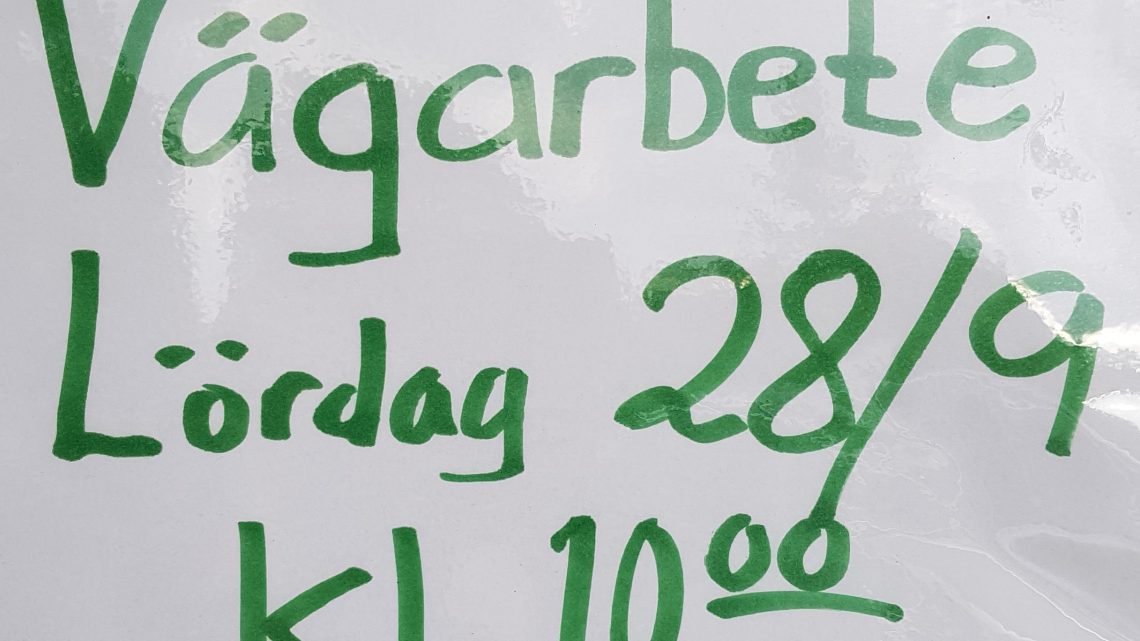 Vägarbete
Lördag 28/9
kl 10⁰⁰